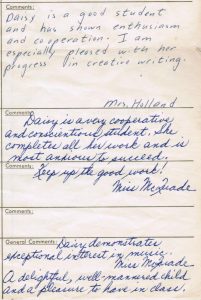 Comments:
Daisy is a good student
and has shown enthusiasm
and cooperation. I am
especially pleased with her
progress in creative writing.
Mrs. Holland
Comments:
Daisy is a very cooperative
and conscientious student. She
completes all her work and is
most anxious to succeed.
Comments:
Keep up the good work!
Miss McQuade
Comments:
General Comments:
Daisy demonstrates
exceptional interest in music.
Miss McQuade
A delightful, well-mannered child
and a pleasure to have in class.